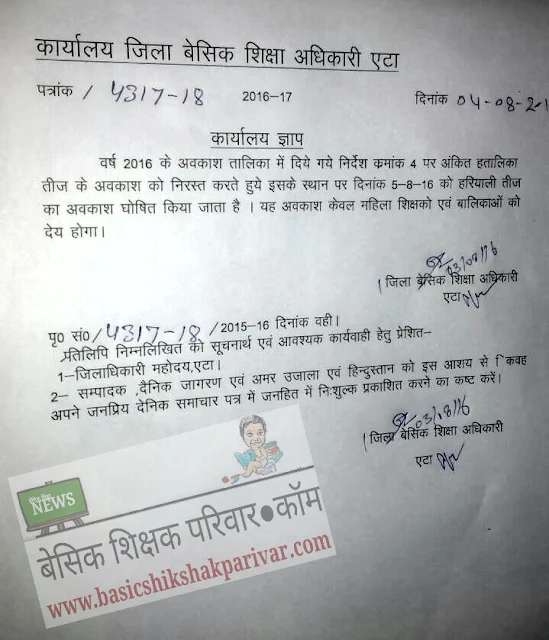 कार्यालय जिला बेसिक शिक्षा अधिकारी एटा
पत्रांक / 4317-18 2016-17 दिनांक 04-08-2
कार्यालय ज्ञाप
वर्ष 2016 के अवकाश तालिका में दिये गये निर्देश क्रमांक 4 पर अंकित हतालिका
तीज के अवकाश को निरस्त करते हुये इसके स्थान पर दिनांक 5-8-16 को हरियाली तीज
का अवकाश घोषित किया जाता है । यह अवकाश केवल महिला शिक्षको एवं बालिकाओं को
देय होगा।
03/08/16
जिला बेसिक शिक्षा अधिकारी
एटा
पृ0 सं0/4317-18/2015-16 दिनांक वही।
प्रतिलिपि निम्नलिखित को सूचनार्थ एवं आवश्यक कार्यवाही हेतु प्रेशित-
1-जिलाधिकारी महोदय,एटा।
2- सम्पादक ,दैनिक जागरण एवं अमर उजाला एवं हिन्दुस्तान को इस आशय से िकवह
अपने जनप्रिय दैनिक समाचार पत्र में जनहित में निःशुल्क प्रकाशित करने का कष्ट करें।
03/08/16
जिला बेसिक शिक्षा अधिकारी
एटा
NEWS
बेसिक शिक्षक परिवार●कॉम
www.basicshikshakparivar.com